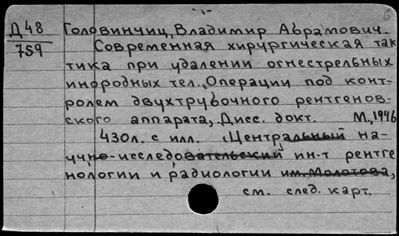 Д48
759
Головинчиц, Владимир Абрамович.
Современная хирургическая так
тика при удалении огнестрельных
инородных тел. Операции под конт-
ролем двухтрубочного рентгенов-
ского аппарата, Дисс. докт. М., 1946
430л. с илл. (Центральный на-
учно-исследовательский ин-т рентге
нологии и радиологии им. Молотова,
см. след. карт.